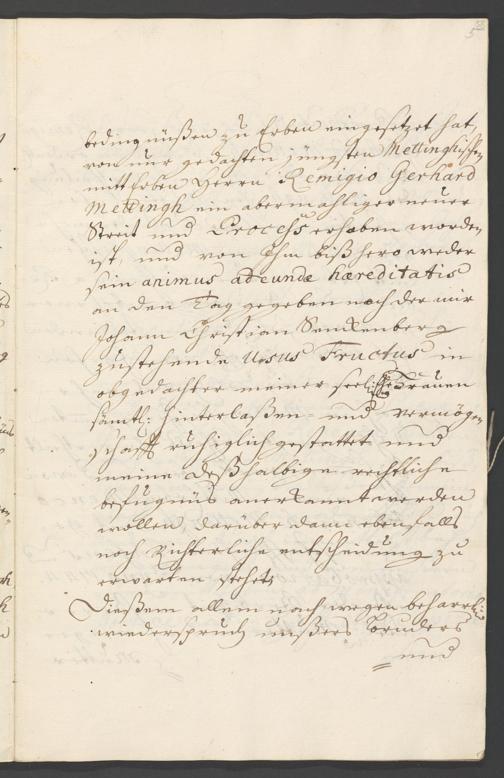 bedingnüßen zu Erben eingesetzet hat,
von nur gedachten jüngsten Mettinghischen
mitt Erben Herrn Remigio Gerhard
Mettingh ein abermahliger neuer
Streit und Process erhoben worden
ist, und von Ihm biß hero weder
sein animus adeundæ hæreditatis
an den Tag gegeben noch der mir
Johann Christian Senckenberg
zustehende Usus Fructus in
obgedachter meiner seel: Frauen
sämtl: Hinterlaßen- und vermögen
schafft ruhiglich gestattet und
meine deßhalbige rechtliche
befugnüs anerkannt werden
wollen, darüber dann ebenfalls
noch Richterliche entscheidung zu
erwarten stehet;
Dießem allem nach wegen beharrl:
wiederspruch unßers Bruders
und